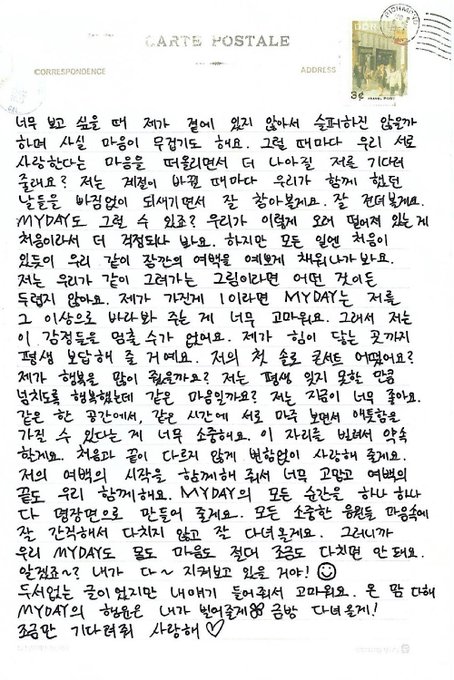 CARTE POSTALE
CORRESPONDENCE
ADDRESS
RICHMOND
3¢
너무 보고 싶을 때 제가 곁에 있지 않아서 슬퍼하진 않을까
하며 사실 마음이 무겁기도 해요. 그럴 때마다 우리 서로
사랑한다는 마음을 떠올리면서 더 나아질 저를 기다려
줄래요? 저는 계절이 바뀔 때마다 우리가 함께 했던
날들을 빠짐없이 되새기면서 잘 참아볼게요. 잘 견뎌볼게요.
MYDAY도 그럴 수 있죠? 우리가 이렇게 오래 떨어져 있는 게
처음이라서 더 걱정되나 봐요. 하지만 모든 일엔 처음이
있듯이 우리 같이 잠깐의 여백을 예쁘게 채워나가 봐요.
저는 우리가 같이 그려가는 그림이라면 어떤 것이든
두렵지 않아요. 제가 가진게 1이라면 MYDAY는 저를
그 이상으로 바라봐 주는 게 너무 고마워요. 그래서 저는
이 감정들을 멈출 수가 없어요. 제가 힘이 닿는 곳까지
평생 보답해 줄 거예요. 저의 첫 솔로 콘서트 어땠어요?
제가 행복을 많이 줬을까요? 저는 평생 잊지 못할 만큼
넘치도록 행복했는데 같은 마음일까요? 저는 지금이 너무 좋아요.
같은 한 공간에서, 같은 시간에 서로 마주 보면서 애틋함을
가질 수 있다는 게 너무 소중해요. 이 자리를 빌려서 약속
할게요. 처음과 끝이 다르지 않게 변함없이 사랑해 줄게요.
저의 여백의 시작을 함께해 줘서 너무 고맙고 여백의
끝도 우리 함께해요. MYDAY의 모든 순간을 하나 하나
다 명장면으로 만들어 줄게요. 모든 소중한 응원들 마음속에
잘 간직해서 다치지 않고 잘 다녀올게요. 그러니까
우리 MYDAY도 몸도 마음도 절대 조금도 다치면 안 돼요.
알겠죠~? 내가 다~ 지켜보고 있을 거야!
두서없는 글이 었지만 내 얘기 들어줘서 고마워요. 온 맘 다해
MYDAY의 행복을 내가 빌어줄게 금방 다녀올게!
조금만 기다려줘 사랑해♡